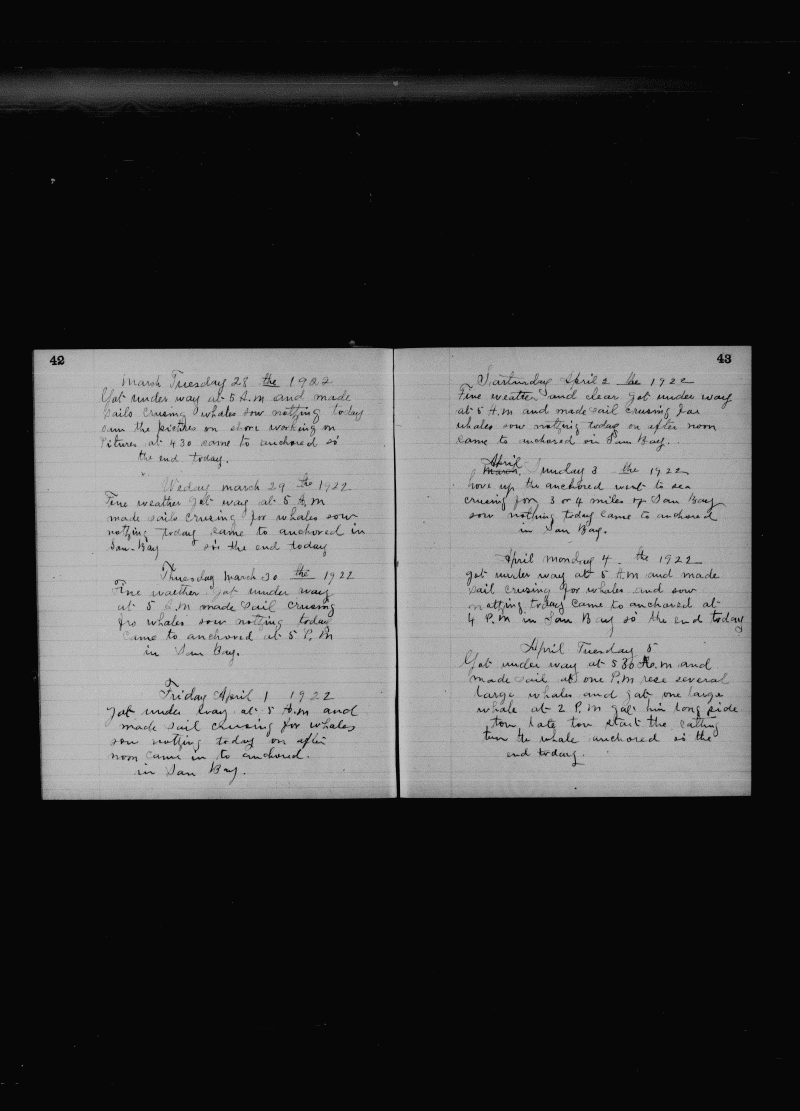 42
March Tuesday 28 the 1922
Got under way at 5 A.M and made
sails crusing whales sow notfing today
on shore working on
at 430 came to anchored so
the end today.
Weday march 29 the 1922
Fine weather got way at 5 A.M
made sails crusing for whales sow
notfing today came to anchored in
San Bay so the end today
Thuesday march 30 the 1922
Fine waither got under way
at 5 A.M made sail crusing
fro whales sow notfing today
Came to anchored at 5 P.M
in San Bay.
Friday April 1 1922
got under way at 5 A.M and
made sail crusing for whales
sow notfing today on after
noon came in to anchored.
in San Bay.
43
Sarturday April 2 the 1922
Fine weather and clear got under way
at 5 A.M and made sail crusing for
whales sow notfing today on after noon
came to anchored in San Bay.
April
March, Sunday 3 the 1922
hove up the anchored went to sea
crusing 3 or 4 miles of San Bay
sow nothing today came to anchored
in San Bay.
April monday 4 the 1922
got under way at 5 A.M and made
sail crusing for whales and sow
notfing today came to anchored at
4 P.M in San Bay so the end today
April Tuesday 5
Got under way at 530 A.M and
made sail at one P.M rese several
large whales and gat one large
whale at 2 P.M gat him long side
late tow start the catting
the whale anchored so the
end today.